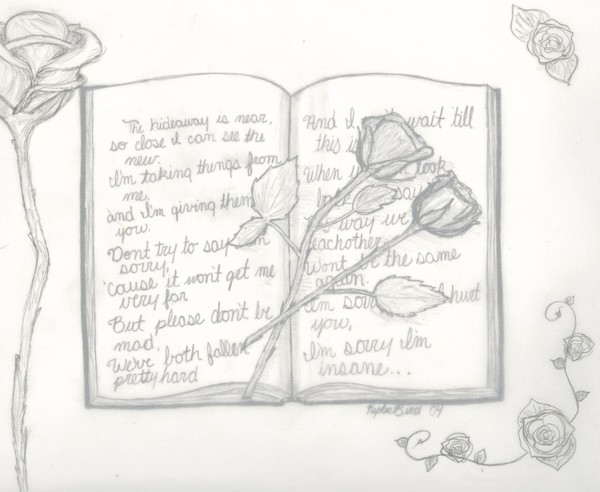 The hideaway is near,
so close I can see the
new.
I'm taking things from
me.
and I'm giving them
you.
Dont try to say I'm
sorry,
'cause it won't get me
very far
But please don't be
mad.
We've both fallen
pretty hard
And I wait 'till
this
When look
say
way we
eachother
Wont be the same
again.
I'm hurt
you,
I'm sorry I'm
insane...